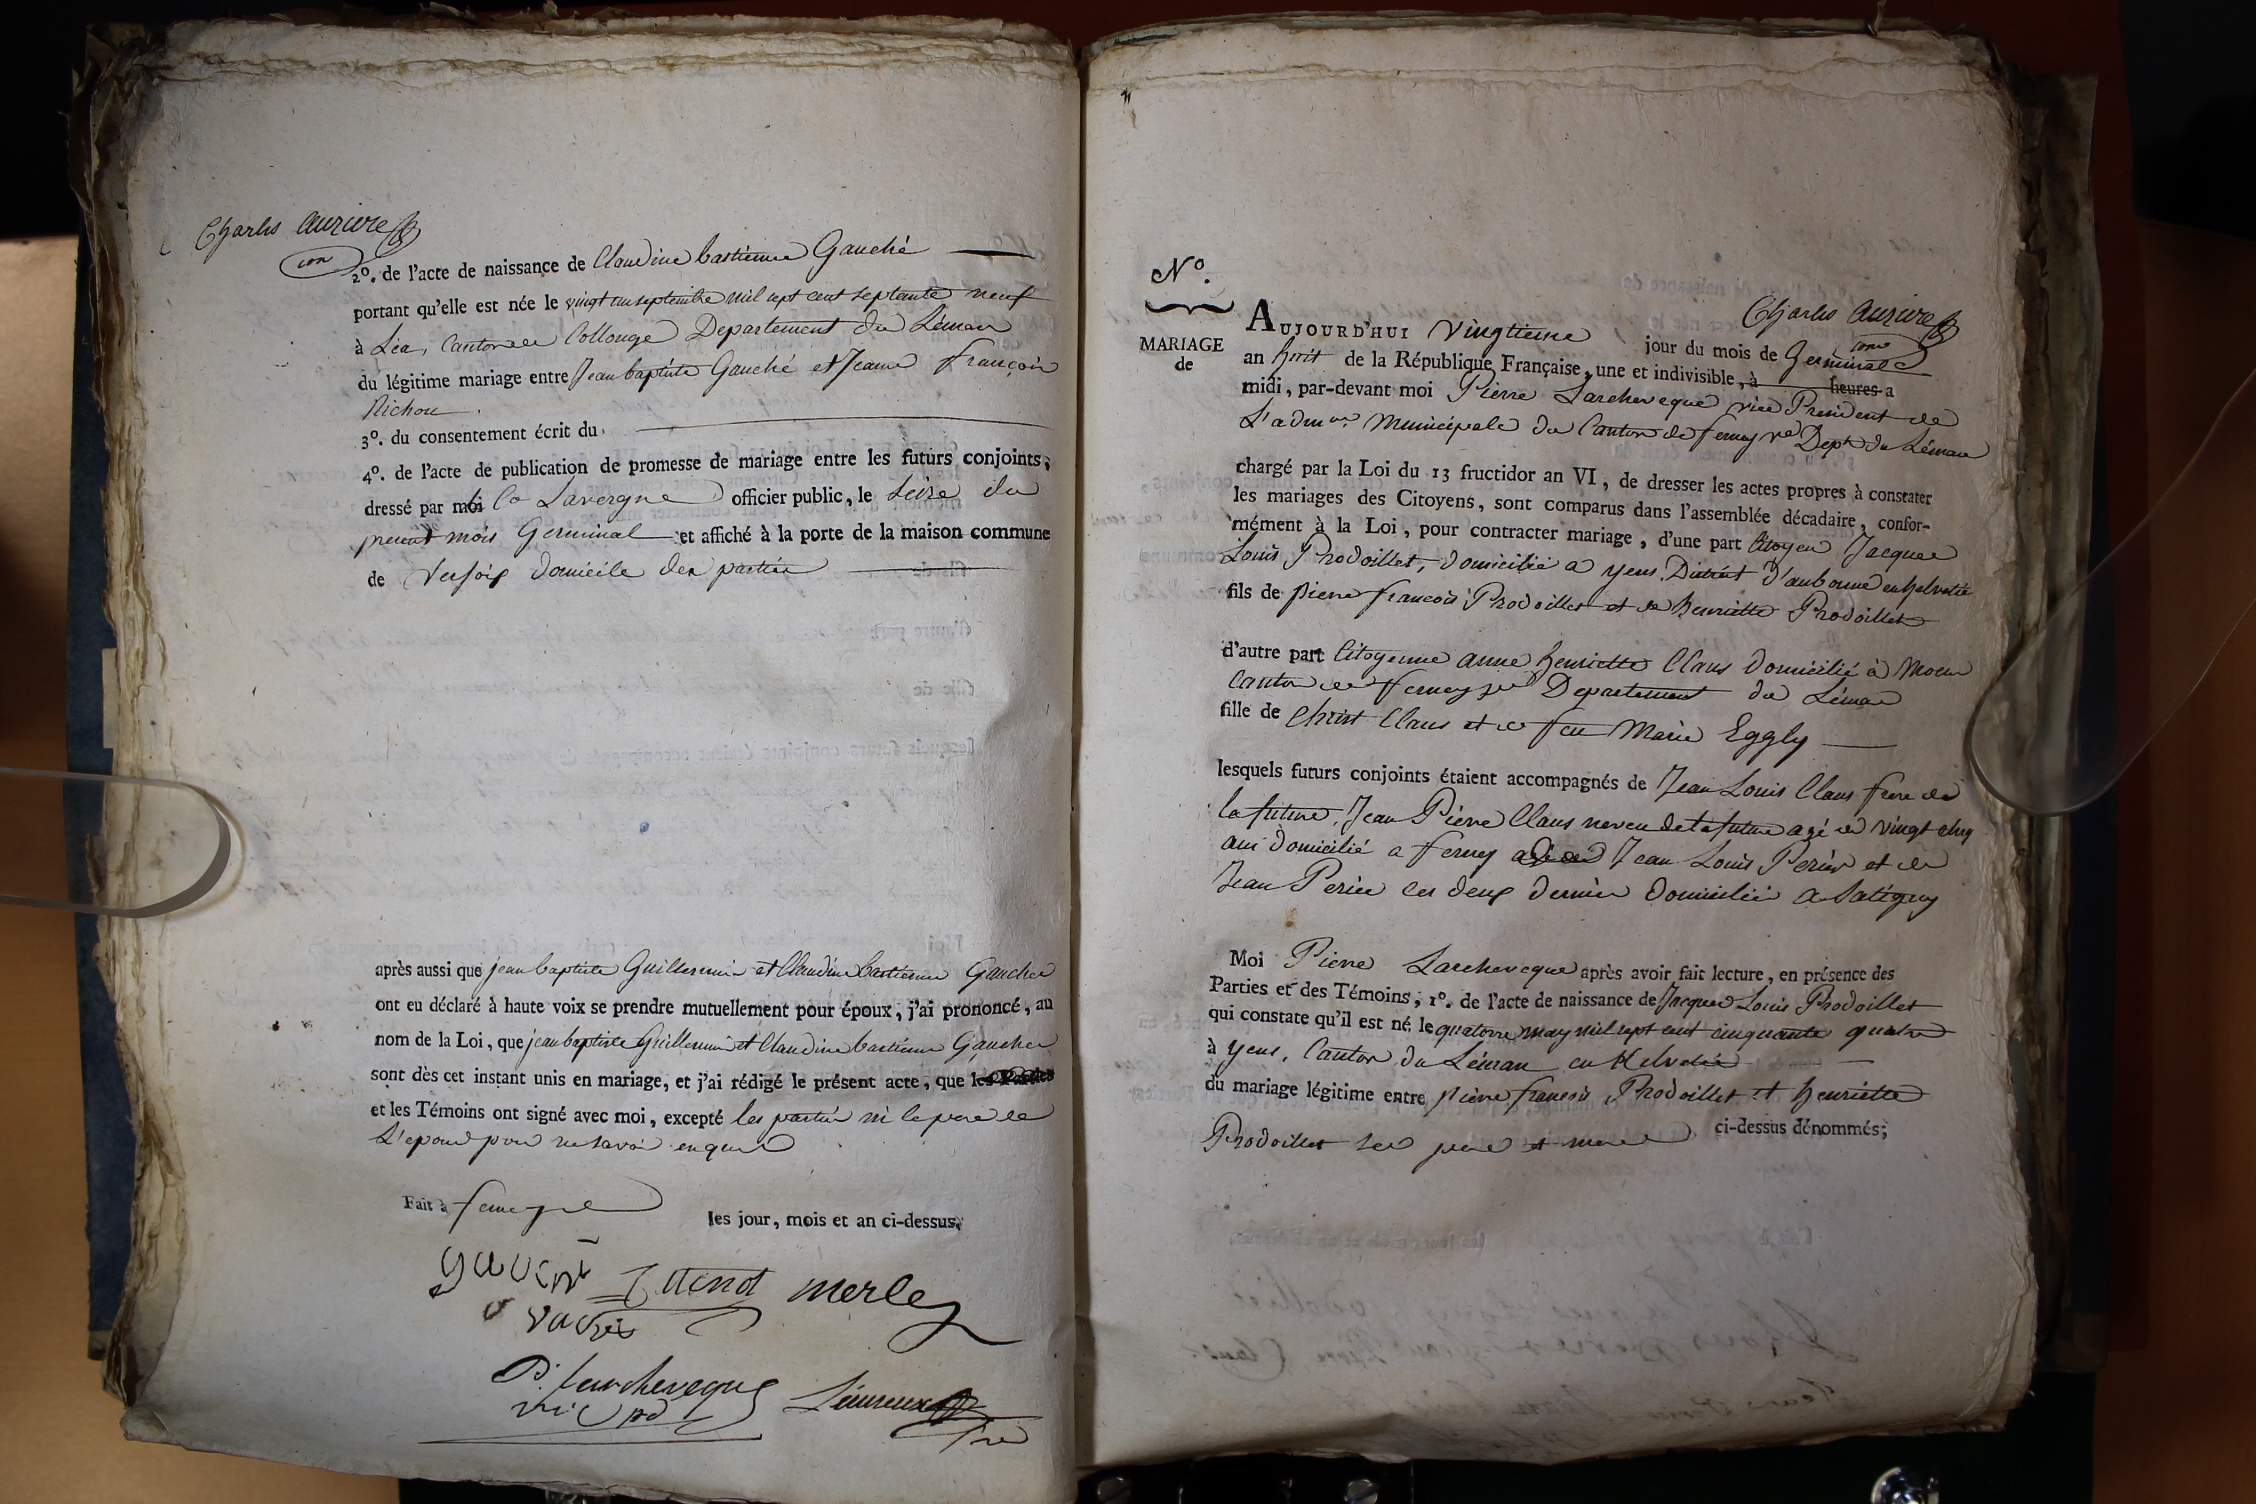 Charles auziere
con
2°. de l'acte de naissance de Claudine bastienne Gauché
portant qu'elle est née le vingt un septembre mil sept cent septante neuf
à Léa, Canton de Collonge Departement du Léman
du légitime mariage entre Jean baptiste Gauché et Jeanne françoise
Richou
3°. du consentement écrit du
4°. de l'acte de publication de promesse de mariage entre les futurs conjoints,
dressé par moi Lavergne officier public, le seize du
present mois Germinal et affiché à la porte de la maison commune
de Versoix domicile des parties
après aussi que jean baptiste Guillermin et Claudine bastienne Gaucher
ont eu déclaré à haute voix se prendre mutuellement pour époux, j'ai prononcé, au
nom de la Loi, que jean baptiste Guillermin et Claudine bastienne Gaucher
sont dès cet instant unis en mariage, et j'ai rédigé le présent acte, que les Parties
et les Témoins ont signé avec moi, excepté les parties ni le pere de
L'epouse pour ne savoir
Fait à les jour, mois et an ci-dessus.
merle
P. Larcheveque
N°.
Charles auziere
MARIAGE
de
AUJOURD'HUI Vingtieme jour du mois de Germinal
an huit de la République Française, une et indivisible, à heures a
midi, par-devant moi Pierre Larcheveque vice President de
L'admon Municipale du Canton de ferney re Dept du Léman
chargé par la Loi du 13 fructidor an VI, de dresser les actes propres à constater
les mariages des Citoyens, sont comparus dans l'assemblée décadaire, confor-
mément à la Loi, pour contracter mariage, d'une part Citoyen Jacques
Louis Prodoillet, domicilié a yens, District d'aubonne en helvetie
fils de pierre francois Prodoillet et de henriette Prodoillet
d'autre part Citoyenne anne henriette Claus domicilié à Moen
Canton de ferney Departement du Léman
fille de Christ Claus et de feu Marie Eggly
lesquels futurs conjoints étaient accompagnés de Jean Louis Claus frere de
la future, Jean Pierre Claus neveu de la future agé de vingt cinq
ans domicilié a ferney Jean Louis Perier et de
Jean Perier ces deux dernier domicilié a Satigny
Moi Pierre Larcheveque après avoir fait lecture, en présence des
Parties et des Témoins, 1°. de l'acte de naissance de Jacques Louis Prodoillet
qui constate qu'il est né le quatorze may mil sept cent cinquante quatre
à yens, Canton du Léman en Helvetie
du mariage légitime entre pierre francois Prodoillet et henriette
Prodoillet ses pere et mere ci-dessus dénommés;